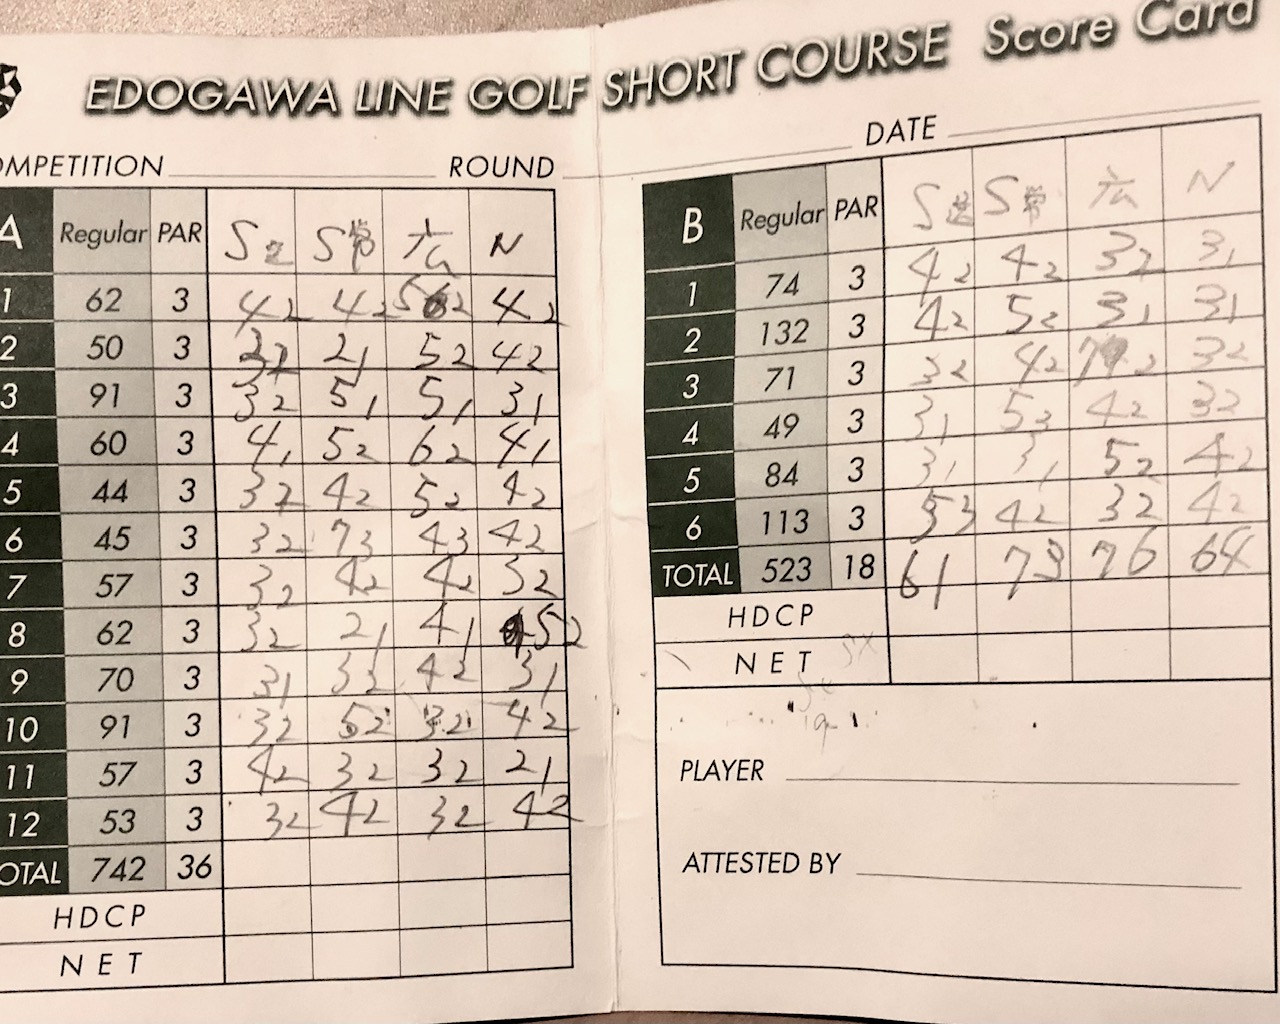 EDOGAWA LINE GOLF SHORT COURSE Score Card
OMPETITION ROUND
A Regular PAR S S常 六 N
1 62 3 42 42 5 2 42
2 50 3 21 52 42
3 91 3 32 51 51 31
4 60 3 41 52 62 41
5 44 3 32 42 52 42
6 45 3 32 73 43 42
7 57 3 32 42 42 52
8 62 3 32 21 41 52
9 70 3 31 32 42 31
10 91 3 32 52 32 42
11 57 3 42 32 32 21
12 53 3 32 42 32 42
OTAL 742 36
HDCP
NET
DATE
B Regular PAR S S常 六 N
1 74 3 42 42 32 31
2 132 3 42 52 31 31
3 71 3 32 42 32
4 49 3 31 53 42 32
5 84 3 31 31 52 42
6 113 3 53 42 32 42
TOTAL 523 18 61 73 76 64
HDCP
NET
PLAYER
ATTESTED BY